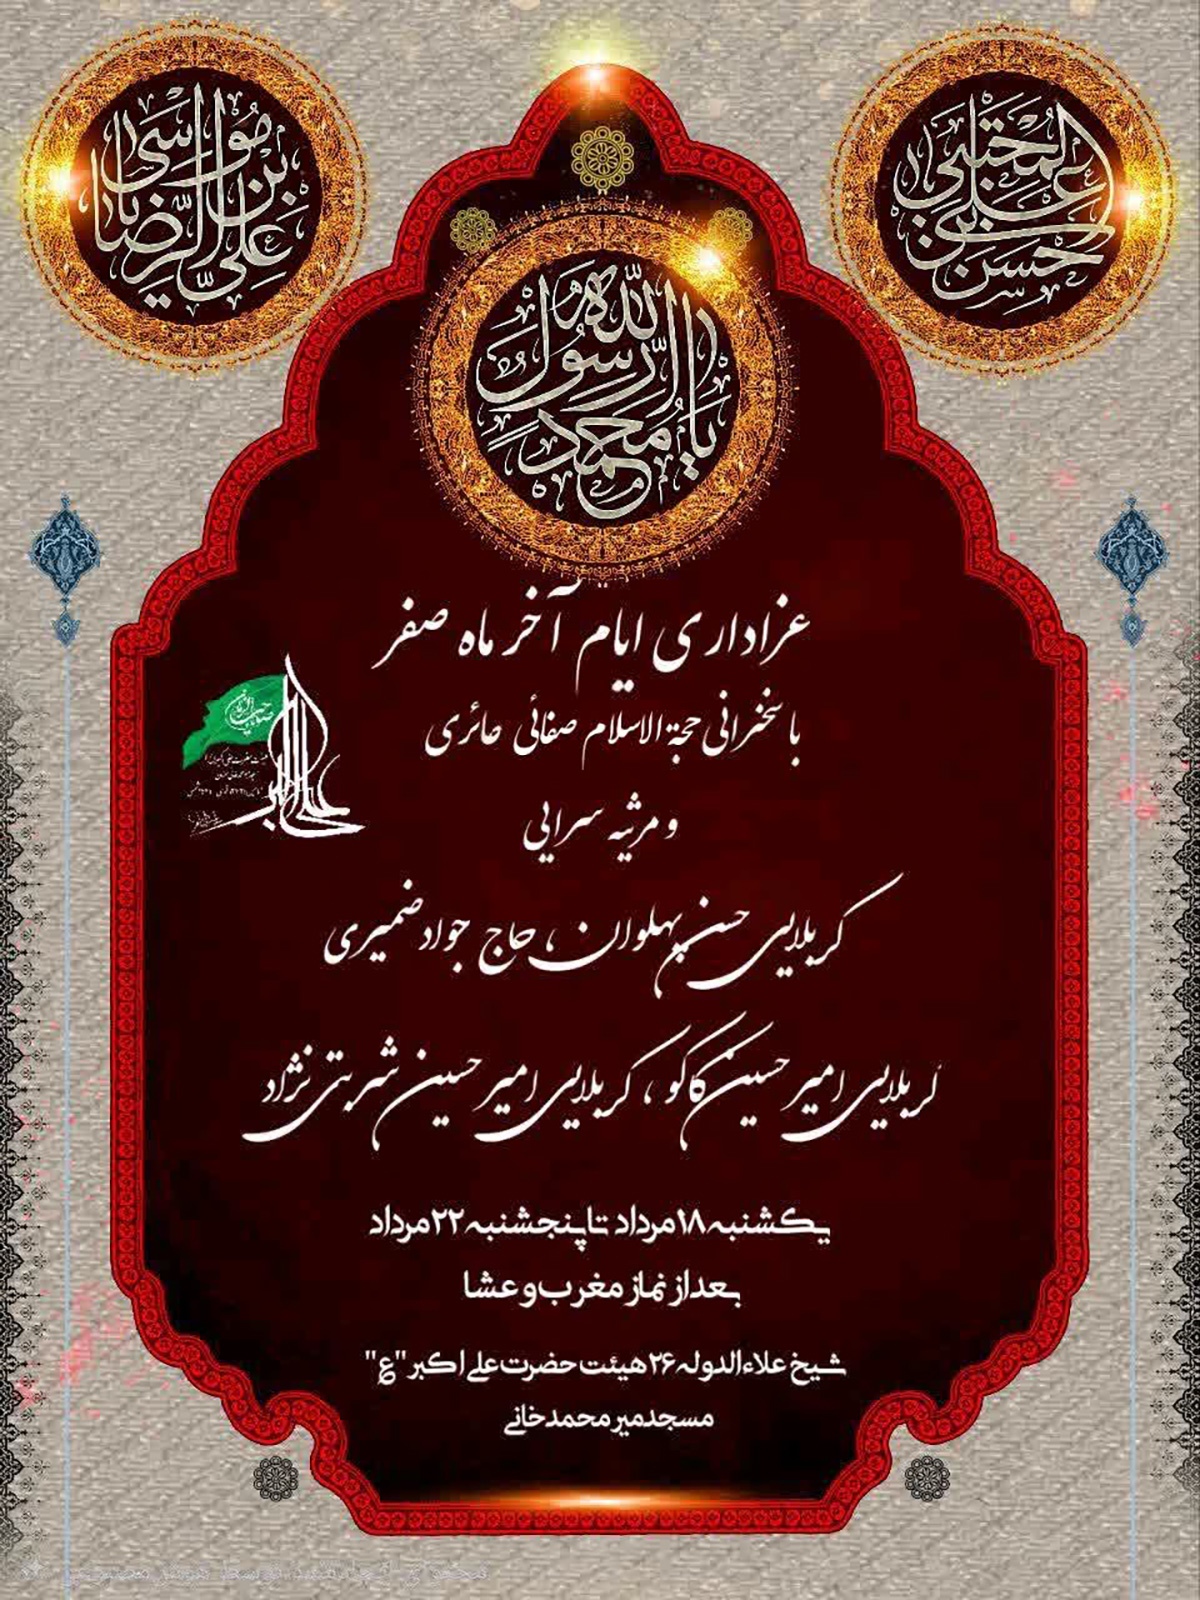 علی بن موسی الرضا
یا محمد رسول الله
حسن بن علی المجتبی
عزاداری ایام آخر ماه صفر
با سخنرانی حجة الاسلام صفائی حائری
و مرثیه سرایی
صاحب الزمان
علی اکبر
کربلایی حسن پهلوان، حاج جواد ضمیری
کربلایی امیر حسین کاکو، کربلایی امیر حسین شربتی نژاد
یکشنبه ۱۸ مرداد تا پنجشنبه ۲۲ مرداد
بعد از نماز مغرب و عشا
شیخ علاءالدوله ۲۶ هیئت حضرت علی اکبر "ع"
مسجد میر محمدخانی